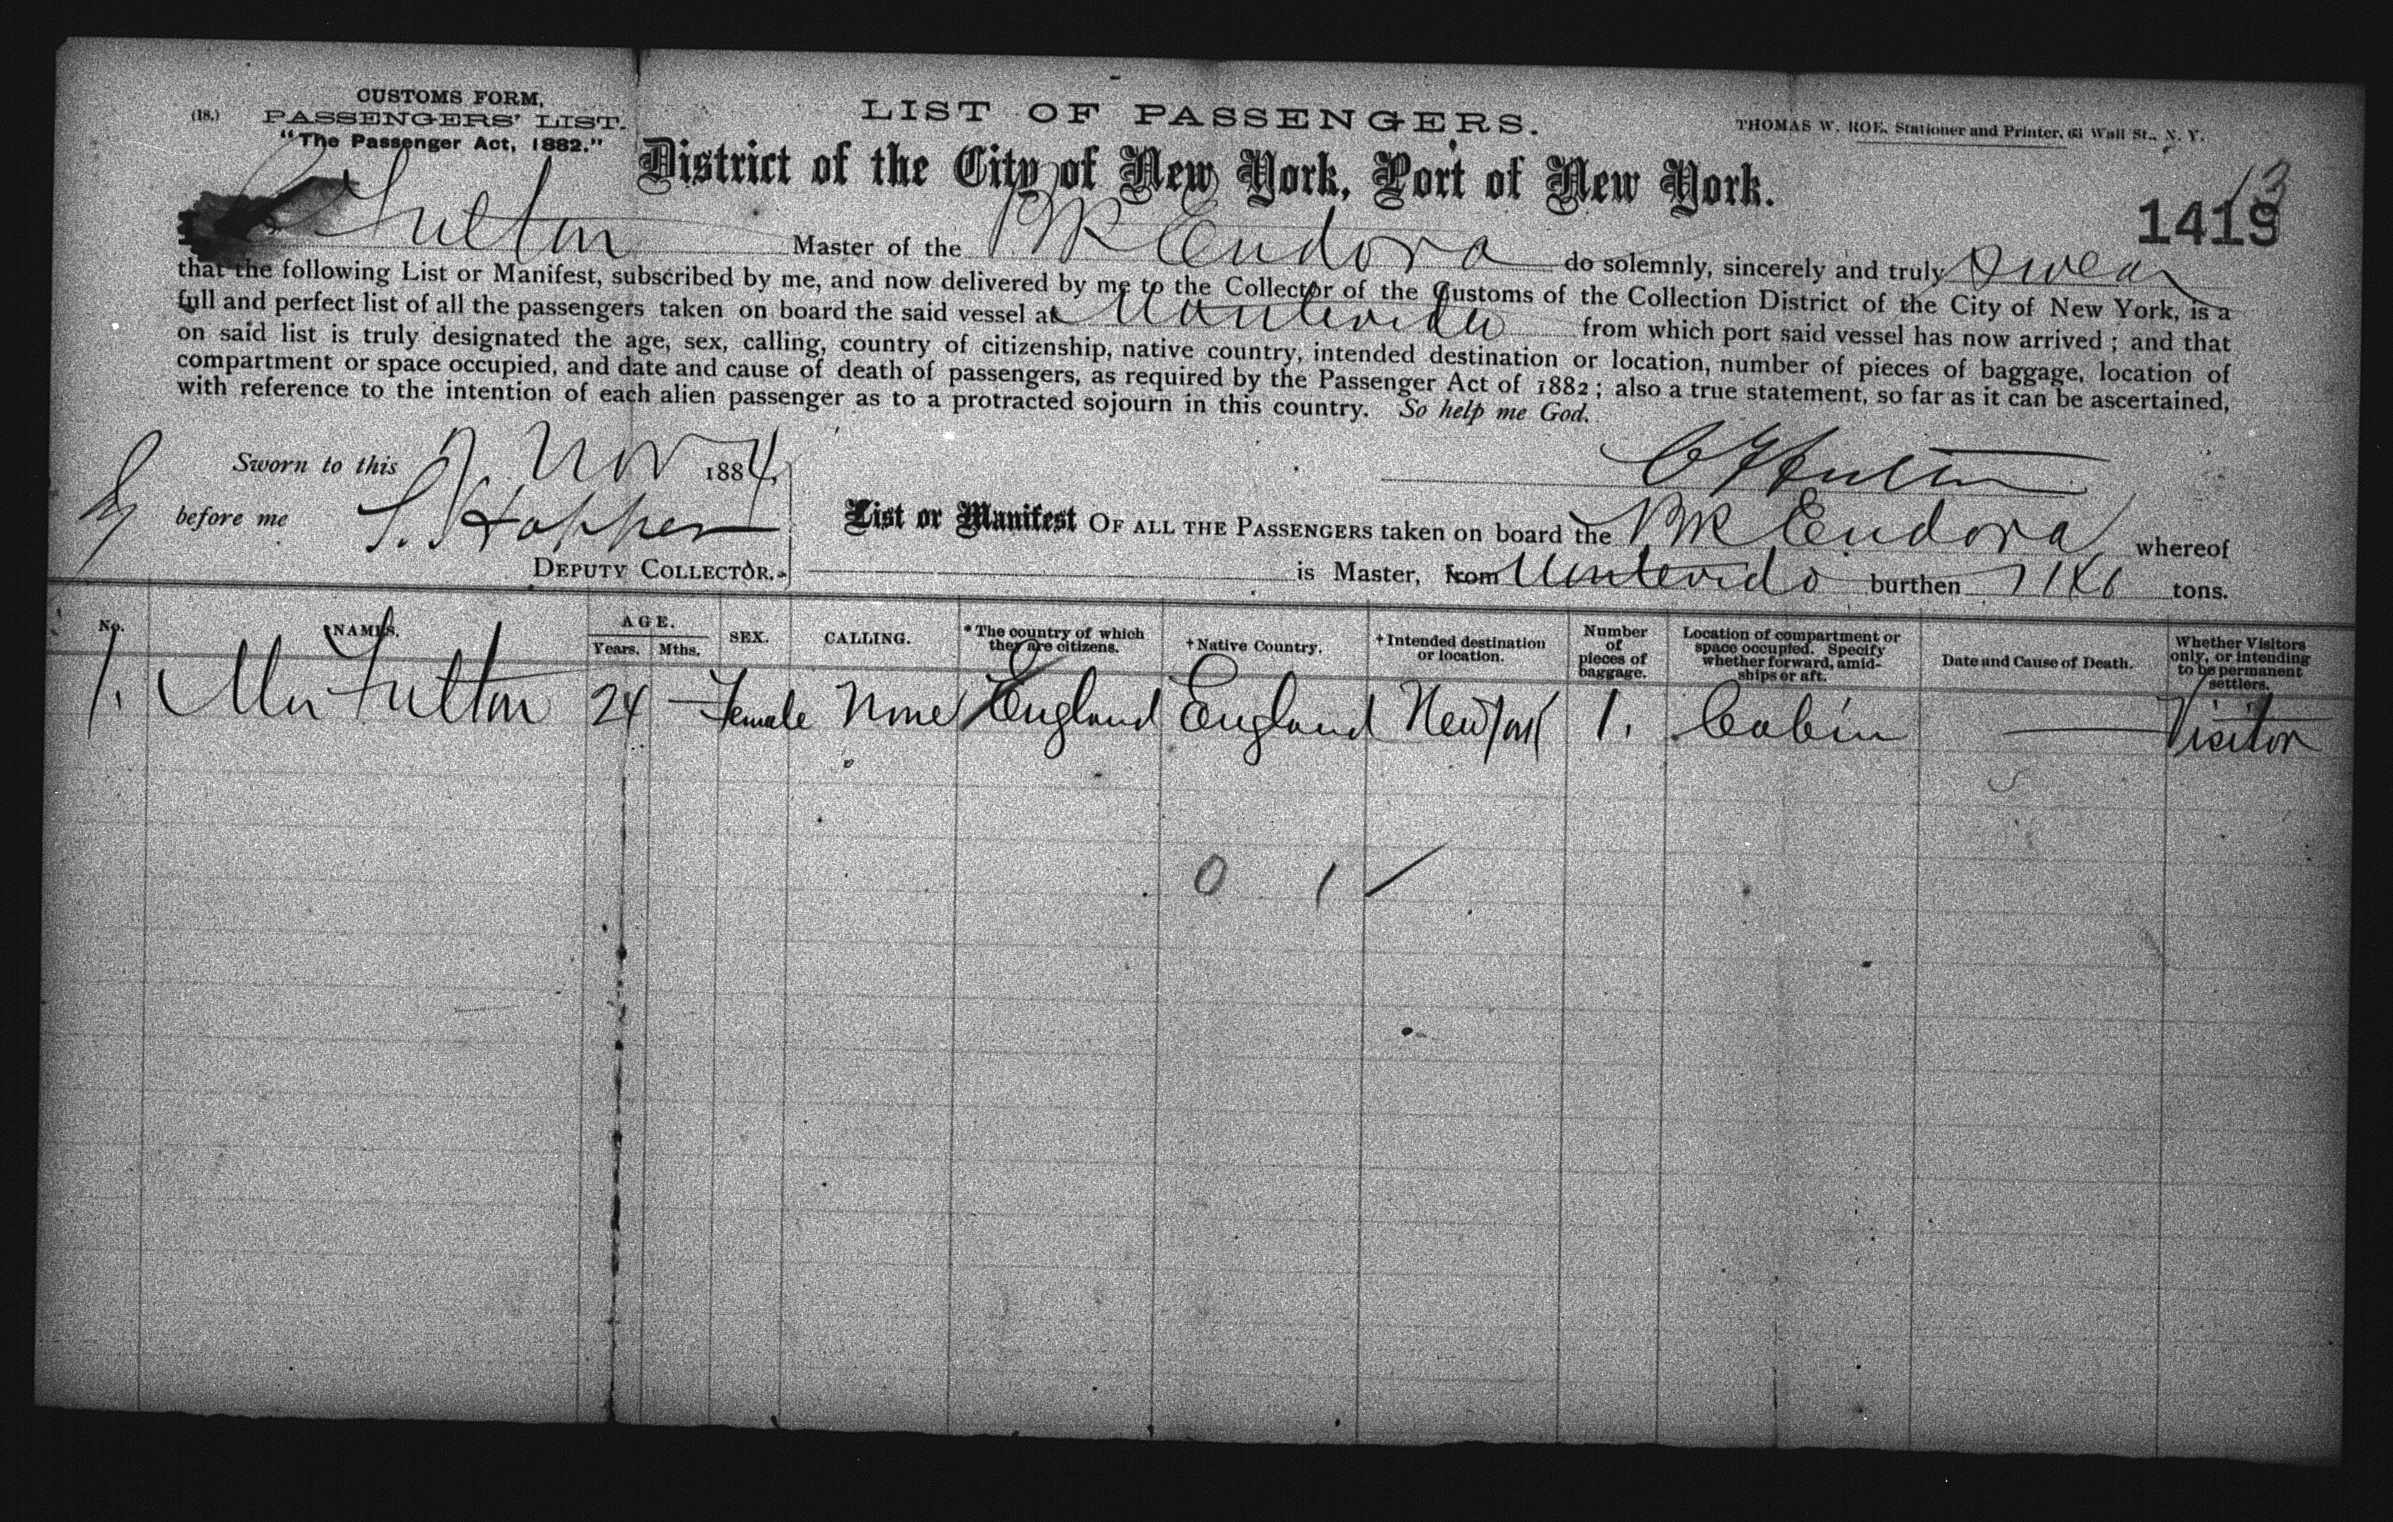 CUSTOMS FORM,
(18.) PASSENGERS' LIST.
"The Passenger Act, 1882."
LIST OF PASSENGERS.
THOMAS W. ROE, Stationer and Printer, 63 Wall St., N. Y.
District of the City of New York, Port of New York.
13
1419
I, Fulton Master of the Bk Eudora do solemnly, sincerely and truly Swear
that the following List or Manifest, subscribed by me, and now delivered by me to the Collector of the Customs of the Collection District of the City of New York, is a
full and perfect list of all the passengers taken on board the said vessel at Montevideo from which port said vessel has now arrived ; and that
on said list is truly designated the age, sex, calling, country of citizenship, native country, intended destination or location, number of pieces of baggage, location of
compartment or space occupied, and date and cause of death of passengers, as required by the Passenger Act of 1882 ; also a true statement, so far as it can be ascertained,
with reference to the intention of each alien passenger as to a protracted sojourn in this country. So help me God.
Sworn to this 7 Nov 1884.
Fulton
before me S. Hopper
List or Manifest OF ALL THE PASSENGERS taken on board the Bk Eudora whereof
DEPUTY COLLECTOR.
is Master, from Montevido burthen tons.
No. NAMES. AGE. Years. Mths. SEX. CALLING. * The country of which they are citizens. † Native Country. † Intended destination or location. Number of pieces of baggage. Location of compartment or space occupied. Specify whether forward, amidships or aft. Date and Cause of Death. Whether Visitors only, or intending to be permanent settlers.
1. Mrs Fulton 24 — Female None England England New York 1. Cabin — Visitor
0 1 /